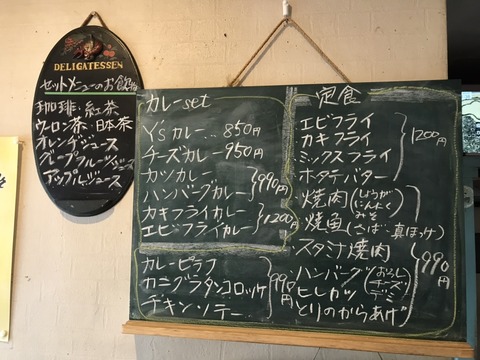 DELICATESSEN
セットメニューのお飲物
珈琲・紅茶
ウーロン茶・日本茶
オレンジジュース
グレープフルーツジュース
アップルジュース
カレーset
Y'sカレー... 850円
チーズカレー 950円
カツカレー
ハンバーグカレー
990円
カキフライカレー
エビフライカレー
1200円
カレーピラフ
カニグラタンコロッケ
チキンソテー
990円
定食
エビフライ
カキフライ
ミックスフライ
ホタテバター
1200円
焼肉(しょうが にんにく みそ)
焼魚(さば… 真ほっけ)
スタミナ焼肉
ハンバーグ(おろし チーズ デミ)
ヒレカツ
とりのからあげ
990円